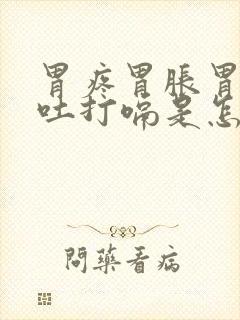 胃疼胃脹胃
吐打嗝是怎
問藥看病